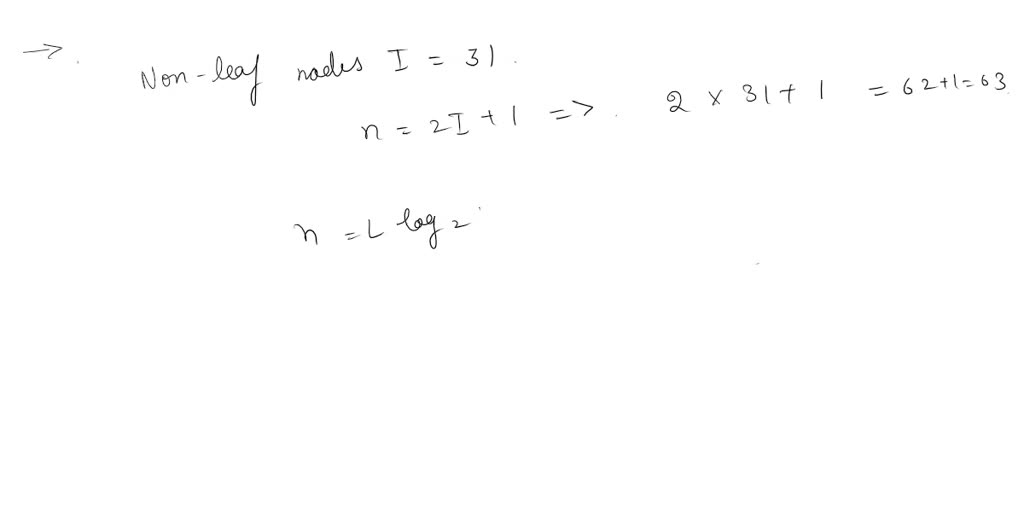 → Non-leaf nodes I = 31.
n = 2I + 1 => 2 × 31 + 1 = 62+1=63
n = L log 2